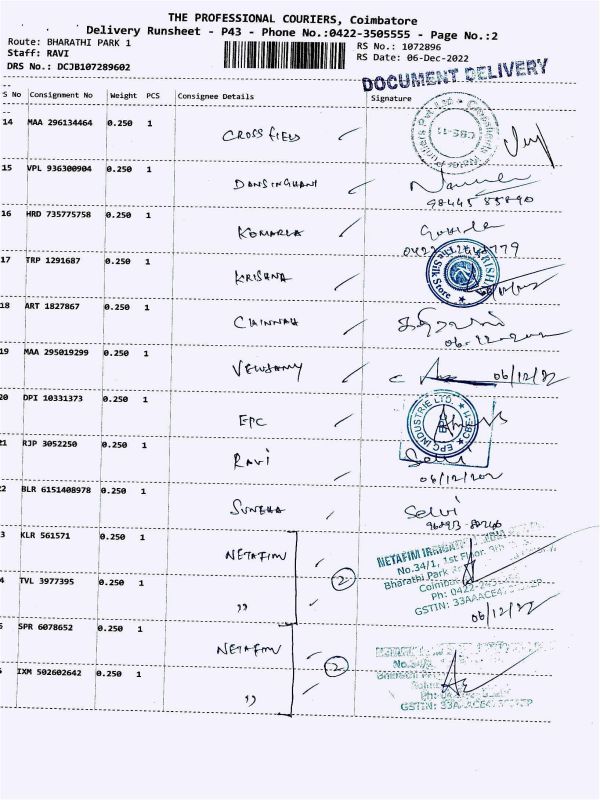 THE PROFESSIONAL COURIERS, Coimbatore
Delivery Runsheet - P43 - Phone No.:0422-3505555 - Page No.:2
Route: BHARATHI PARK 1
RS No.: 1072896
Staff: RAVI
RS Date: 06-Dec-2022
DRS No.: DCJB107289602
DOCUMENT DELIVERY
S No Consignment No Weight PCS Consignee Details Signature
14 MAA 296134464 0.250 1 CROSSFIELD
CBE-11
15 VPL 936300904 0.250 1 DANSINGHANI
98445 85890
16 HRD 735775758 0.250 1 KOMARLA
17 TRP 1291687 0.250 1 KRISHNA
The Silk Store
06/12/22
18 ART 1827867 0.250 1 CHINNAH
19 MAA 295019299 0.250 1 VELUSAMY
06/12/22
20 DPI 10331373 0.250 1 EPC
EPC INDUSTRIE LTD.
EPC
21 RJP 3052250 0.250 1 RAVI
Selvi
06/12/202
2 BLR 6151408978 0.250 1 SUNEHA
Selvi
3 KLR 561571 0.250 1 NETAFIM
NETAFIM
No.34/1, 1st Floor,
Bharathi Park
4 TVL 3977395 0.250 1 ,,
2
Ph: 0422-
GSTIN: 33AAACE4
06/12/22
SPR 6078652 0.250 1 NETAFIM
2
IXM 502602642 0.250 1 ,,
GSTIN: 33A